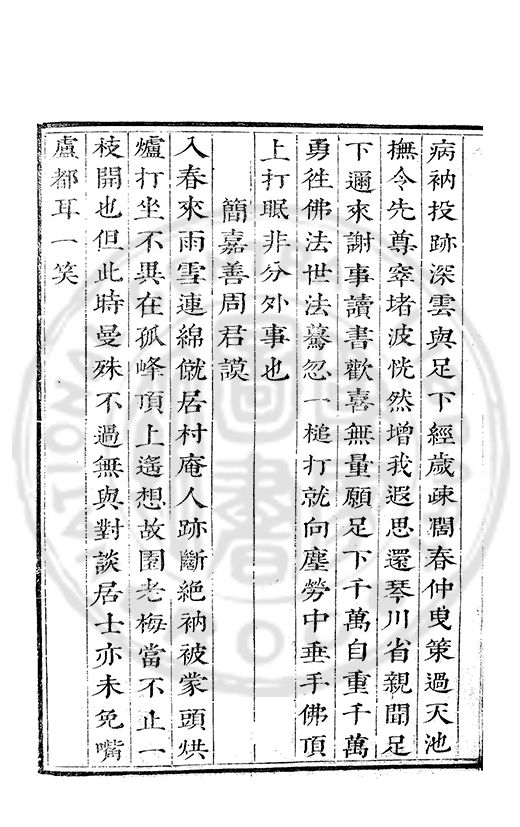 病衲投跡深雲與足下經歲疎濶春仲曳策過天池
撫令先尊窣堵波恍然增我遐思還琴川省親聞足
下邇來謝事讀書歡喜無量願足下千萬自重千萬
勇徃佛法世法驀忽一槌打就向塵勞中垂手佛頂
上打眠非分外事也
簡嘉善周君謨
入春來雨雪連綿僦居村庵人跡斷絶衲被蒙頭烘
爐打坐不異在孤峰頂上遙想故園老梅當不止一
枝開也但此時曼殊不過無與對談居士亦未免嘴
盧都耳一笑